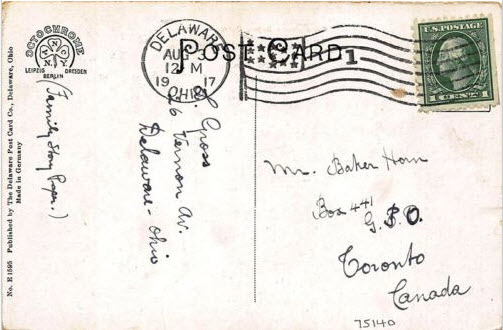 OCTOCHROME
N.Y.
LEIPZIG DRESDEN
BERLIN
POST CARD
DELAWARE
AUG 3
12 M
1917
OHIO
1
U.S. POSTAGE
1 CENTS 1
No. E 1595 Published by The Delaware Post Card Co., Delaware, Ohio
Made in Germany
(Family Story Paper.)
Gross
26 Vernon Av.
Delaware - Ohio
Mr. Baker Horn
Box 441
G.P.O.
Toronto
Canada
75140